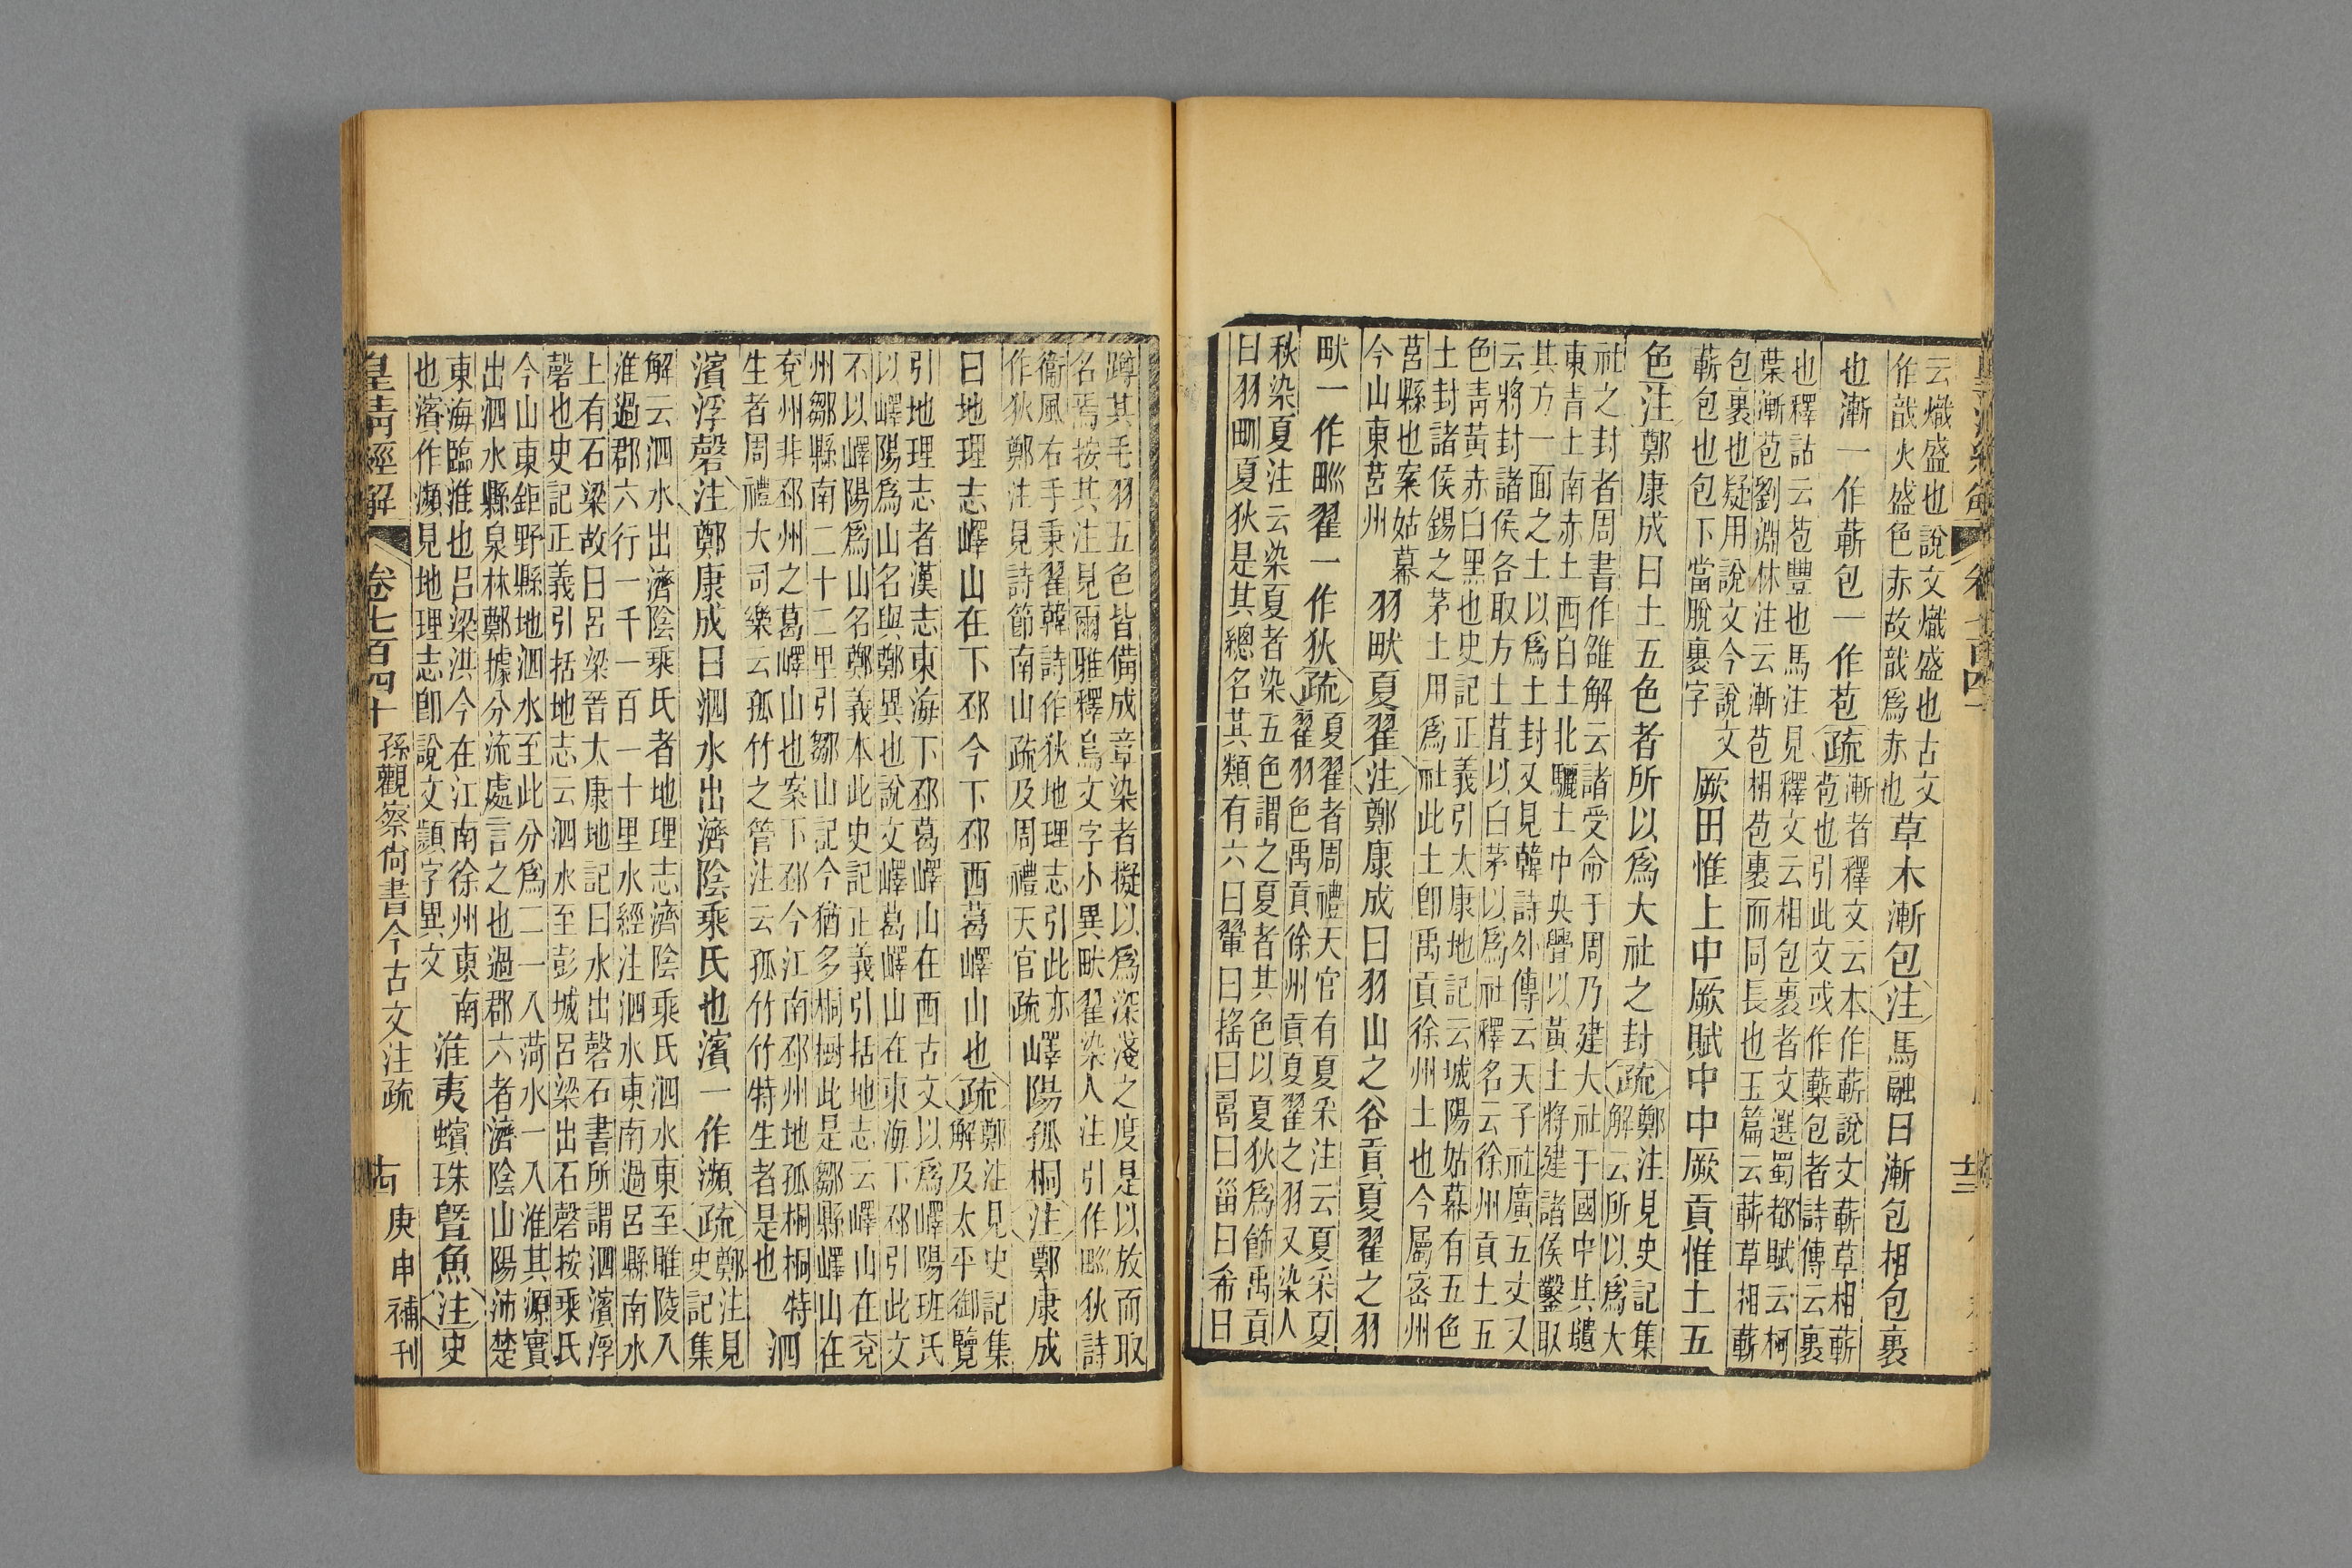 云熾盛也說文熾盛也古文
作戠火盛色赤故戠爲赤也
草木漸包注馬融曰漸包相包裹
也漸一作蔪包一作苞疏
漸者釋文云本作蔪說文蔪草相蔪
苞也引此文或作蘽包者詩傳云裹
也釋詁云苞豐也馬注見釋文云相包裹者文選蜀都賦云柯
葉漸苞劉淵林注云漸苞相苞裹而同長也玉篇云蔪草相蔪
包裹也疑用說文今說文
蔪包也包下當脫裹字
厥田惟上中厥賦中中厥貢惟土五
色注鄭康成曰土五色者所以爲大社之封疏
鄭注見史記集
解云所以爲大
社之封者周書作雒解云諸受命于周乃建大社于國中其壝
東青土南赤土西白土北驪土中央舋以黃土將建諸侯鑿取
其方一面之土以爲土封又見韓詩外傳云天子社廣五丈又
云將封諸侯各取方土苴以白茅以爲社釋名云徐州貢土五
色青黃赤白黑也史記正義引太康地記云城陽姑幕有五色
土封諸侯錫之茅土用爲社此土卽禹貢徐州土也今屬密州
莒縣也案姑幕
今山東莒州
羽畎夏翟注鄭康成曰羽山之谷貢夏翟之羽
畎一作𤰕翟一作狄疏
夏翟者周禮天官有夏采注云夏采夏
翟羽色禹貢徐州貢夏翟之羽又染人
秋染夏注云染夏者染五色謂之夏者其色以夏狄爲飾禹貢
曰羽畎夏狄是其總名其類有六曰翬曰搖曰𠷎曰甾曰希曰
蹲其毛羽五色皆備成章染者擬以爲深淺之度是以放而取
名焉按其注見爾雅釋鳥文字小異畎翟染人注引作𤰕狄詩
衞風右手秉翟韓詩作狄地理志引此亦
作狄鄭注見詩節南山疏及周禮天官疏
嶧陽孤桐注鄭康成
曰地理志嶧山在下邳今下邳西葛嶧山也疏
鄭注見史記集
解及太平御覽
引地理志者漢志東海下邳葛嶧山在西古文以爲嶧陽班氏
以嶧陽爲山名與鄭異也說文嶧葛嶧山在東海下邳引此文
不以嶧陽爲山名鄭義本此史記正義引括地志云嶧山在兗
州鄒縣南二十二里引鄒山記今猶多桐樹此是鄒縣嶧山在
兗州非邳州之葛嶧山也案下邳今江南邳州地孤桐桐特
生者周禮大司樂云孤竹之管注云孤竹竹特生者是也
泗
濱浮磬注鄭康成曰泗水出濟陰乘氏也濱一作瀕疏
鄭注見
史記集
解云泗水出濟陰乘氏者地理志濟陰乘氏泗水東至睢陵入
淮過郡六行一千一百一十里水經注泗水東南過呂縣南水
上有石梁故曰呂梁晉太康地記曰水出磬石書所謂泗濱浮
磬也史記正義引括地志云泗水至彭城呂梁出石磬按乘氏
今山東鉅野縣地泗水至此分爲二一入菏水一入淮其源實
出泗水縣泉林鄭據分流處言之也過郡六者濟陰山陽沛楚
東海臨淮也呂梁洪今在江南徐州東南
也濱作瀕見地理志卽說文顥字異文
淮夷蠙珠曁魚注史
皇清經解
卷七百四十
孫觀察尙書今古文注疏
十四
庚申補刊